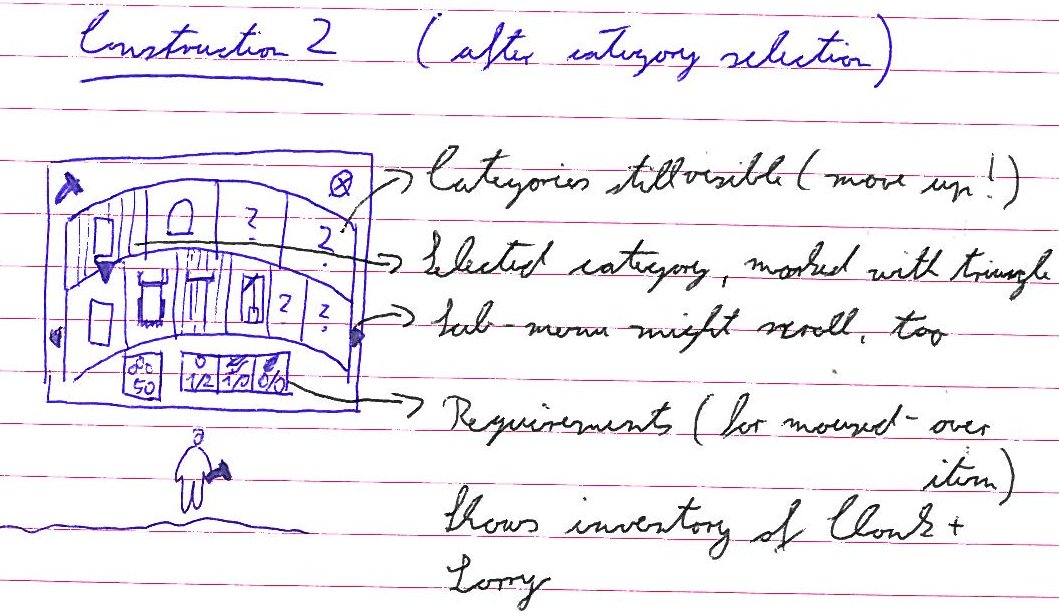 Construction 2 (after category selection)
Categories still visible (move up!)
Selected category, marked with triangle
Sub-menu might scroll, too
Requirements (for moused-over
item)
Shows inventory of Clonk +
Lorry
? ?
? ?
50 1/2 1/0 0/0